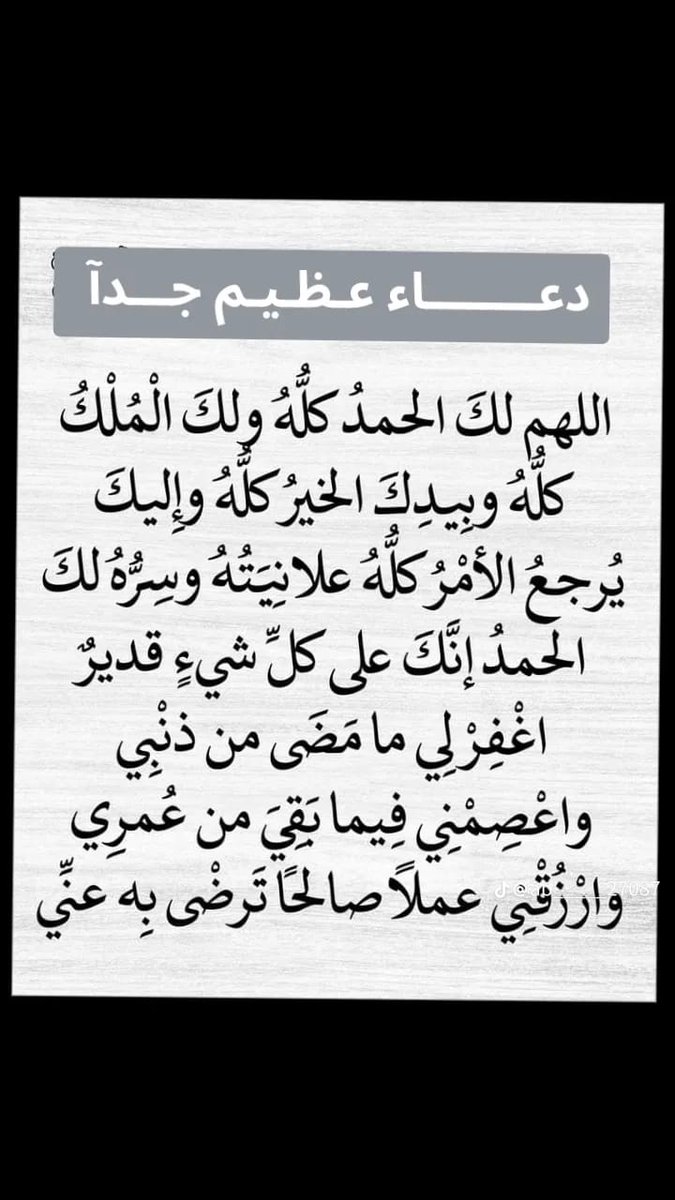 دعـــــــاء عـظـيـم جـــدآ
اللهم لكَ الحمدُ كلُّهُ ولكَ الْمُلْكُ
كلُّهُ وبِيدِكَ الخيرُ كلُّهُ وإِليكَ
يُرجعُ الأمْرُ كلُّهُ علانِيَتُهُ وسِرُّهُ لكَ
الحمدُ إنَّكَ على كلِّ شيءٍ قديرٌ
اغْفِرْلِي ما مَضَى من ذنْبِي
واعْصِمْنِي فِيما بَقِيَ من عُمرِي
وارْزُقْنِي عملاً صالحًا تَرضْى بِه عنِّي